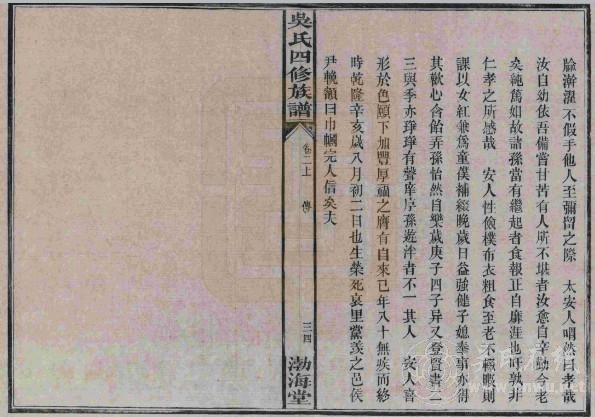 膾澣濯不假手他人至彌留之際　太安人喟然曰孝哉
汝自幼依吾備嘗甘苦有人所不堪者汝愈自辛勤今老
矣純篤如故諸孫當有繼起者食報正自靡涯也嗚孰非
仁孝之所感哉　安人性儉樸布衣粗食至老不輟暇則
課以女紅兼爲童僕補綴晚歲日益強健子媳奉事亦得
其歡心含飴弄孫怡然自樂歲庚子四子异又登賢書二
三與季亦琤琤有聲庠序孫遊泮者不一其人　安人喜
形於色頤下加豐厚福之膺有自來已年八十無疾而終
時乾隆辛亥歲八月初二日也生榮死哀里黨羨之邑侯
尹輓額曰巾幗完人信矣夫
吳氏四修族譜
卷二上　傳
三四
渤海堂